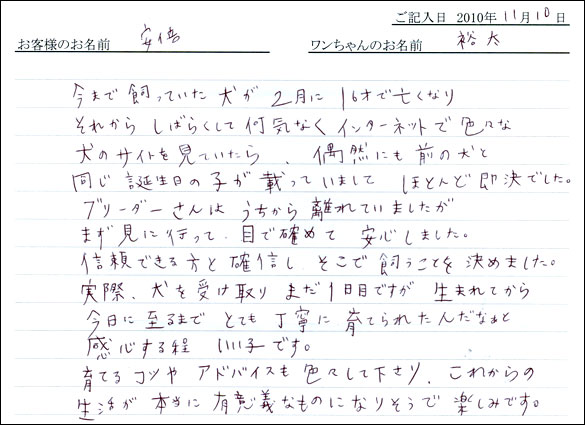 ご記入日 2010年 11月 10日
お客様のお名前 安倍 ワンちゃんのお名前 裕太
今まで 飼っていた 犬が 2月に 16才で亡くなり
それから しばらくして 何気なく インターネットで 色々な
犬のサイトを見ていたら、偶然にも 前の犬と
同じ 誕生日の子が 載っていまして ほとんど即決でした。
ブリーダーさんは うちから 離れていましたが
まず見に行って、目で確めて 安心しました。
信頼できる方と 確信し そこで 飼うことを 決めました。
実際、犬を受け取り まだ 1日目ですが 生まれてから
今日に 至るまで とても 丁寧に 育てられたんだなぁと
感心する程 いい子です。
育てるコツや アドバイスも 色々して下さり、これからの
生活が 本当に 有意義なものになりそうで 楽しみです。